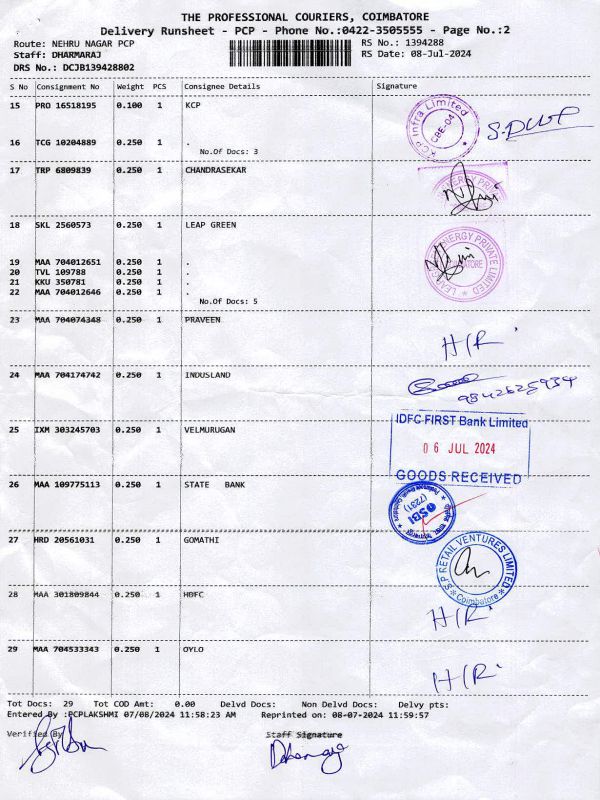 THE PROFESSIONAL COURIERS, COIMBATORE
Delivery Runsheet - PCP - Phone No.:0422-3505555 - Page No.:2
Route: NEHRU NAGAR PCP RS No.: 1394288
Staff: DHARMARAJ RS Date: 08-Jul-2024
DRS No.: DCJB139428802
S No Consignment No Weight PCS Consignee Details Signature
15 PRO 16518195 0.100 1 KCP
KCP Infra Limited CBE-04
16 TCG 10204889 0.250 1 .
No.Of Docs: 3
17 TRP 6809839 0.250 1 CHANDRASEKAR
ENERGY PRIVATE
18 SKL 2560573 0.250 1 LEAP GREEN
ENERGY PRIVATE LIMITED
19 MAA 704012651 0.250 1 .
20 TVL 109788 0.250 1 .
21 KKU 350781 0.250 1 .
22 MAA 704012646 0.250 1 .
No.Of Docs: 5
23 MAA 704074348 0.250 1 PRAVEEN
H/R
24 MAA 704174742 0.250 1 INDUSLAND
9842625934
25 IXM 303245703 0.250 1 VELMURUGAN
IDFC FIRST Bank Limited
06 JUL 2024
GOODS RECEIVED
26 MAA 109775113 0.250 1 STATE BANK
SBI
(7231)
27 HRD 20561031 0.250 1 GOMATHI
S.P RETAIL VENTURES LIMITED
Coimbatore
28 MAA 301809844 0.250 1 HDFC
H/R
29 MAA 704533343 0.250 1 OYLO
H/R
Tot Docs: 29 Tot COD Amt: 0.00 Delvd Docs: Non Delvd Docs: Delvy pts:
Entered By :PCPLAKSHMI 07/08/2024 11:58:23 AM Reprinted on: 08-07-2024 11:59:57
Verified By Staff Signature